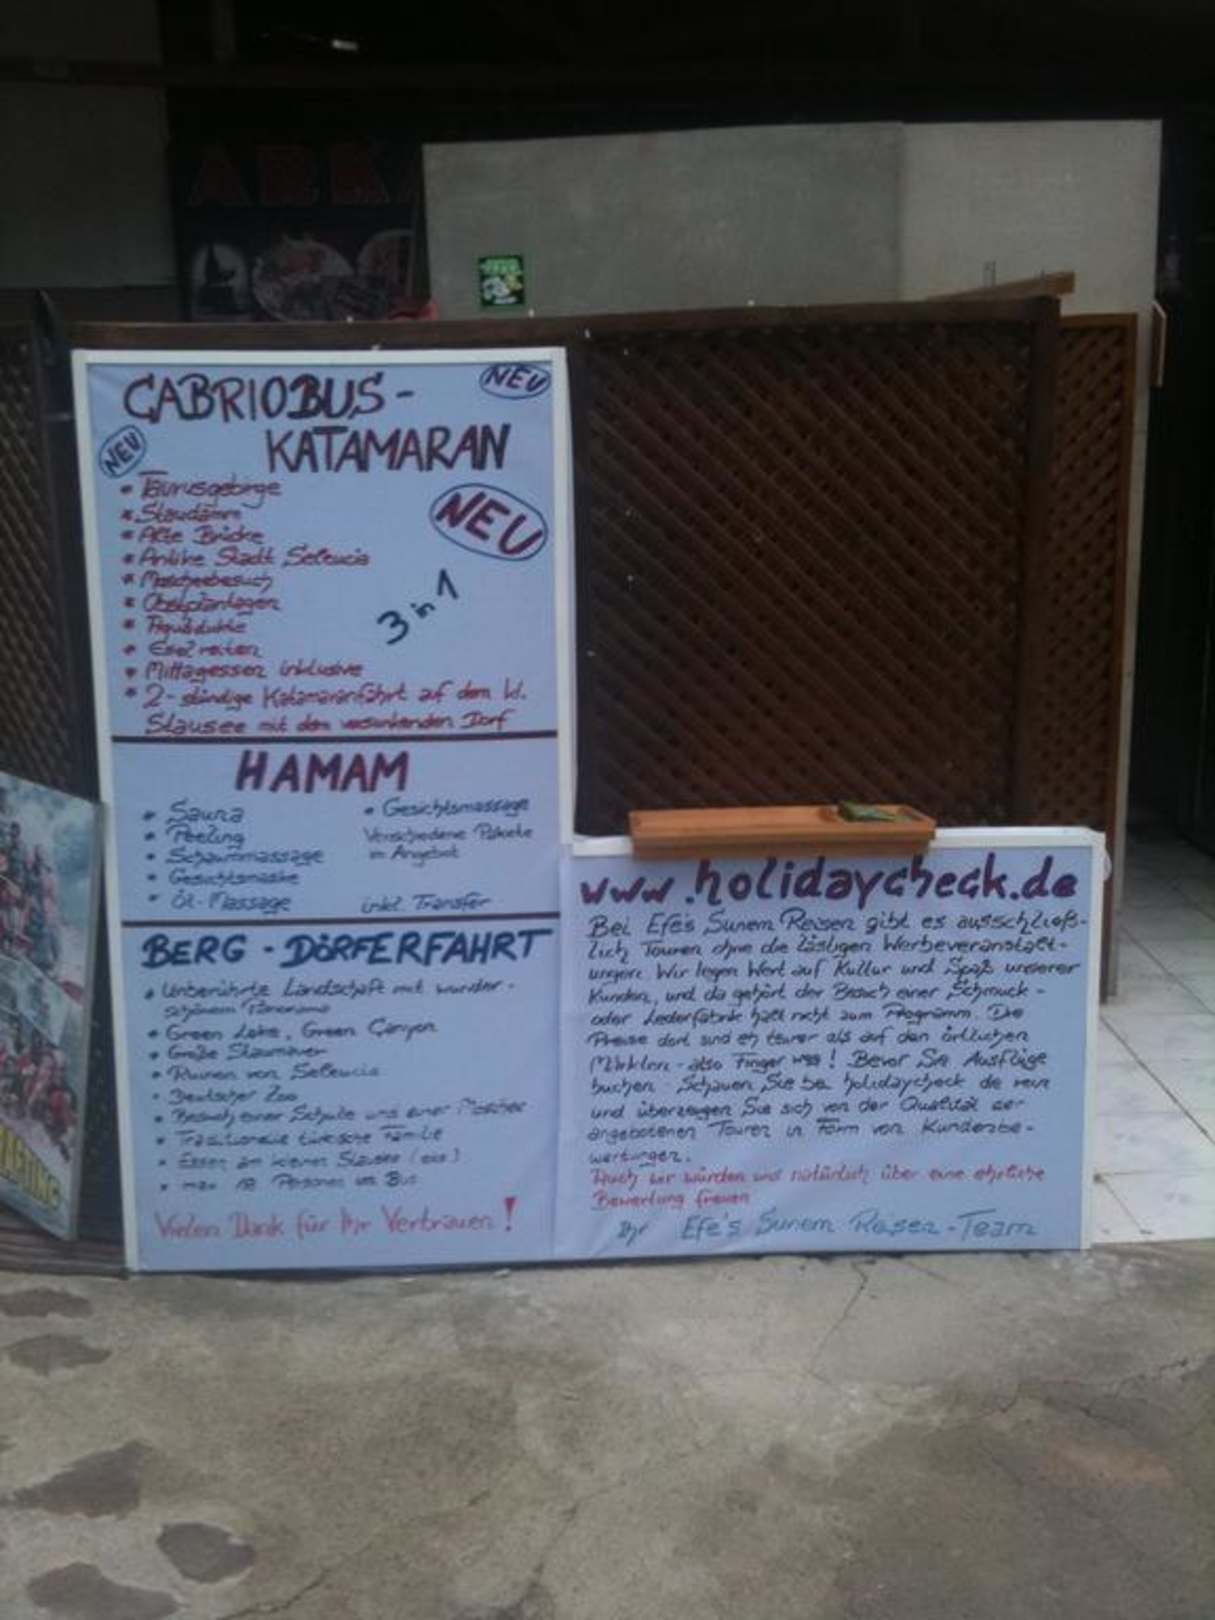 ABKA
CABRIOBUS-
NEU
KATAMARAN
NEU
* Taurusgebirge
* Staudamm
* Alte Brücke
* Antike Stadt Seleucia
NEU
* Moscheebesuch
* Obstplantagen
3 in 1
* Aquädukte
* Esel reiten
* Mittagessen inklusive
* 2-stündige Katamaranfahrt auf dem kl.
Stausee mit dem versunkenden Dorf
HAMAM
* Sauna
* Peeling
* Schaummassage
* Gesichtsmaske
* Öl-Massage
* Gesichtsmassage
Verschiedene Pakete
im Angebot
inkl. Transfer
BERG - DÖRFERFAHRT
* Unberührte Landschaft mit wunder-
schönem Panorama
* Green Lake, Green Canyon
* Große Staumauer
* Ruinen von Seleucia
* Deutscher Zoo
* Besuch einer Schule und einer Moschee
* Traditionelle türkische Familie
* Essen am kleinen Stausee
* max 18 Personen im Bus
Vielen Dank für Ihr Vertrauen!
www.holidaycheck.de
Bei Efe's Sunem Reisen gibt es ausschließ-
lich Touren ohne die lästigen Werbeveranstalt-
ungen. Wir legen Wert auf Kultur und Spaß unserer
Kunden, und da gehört der Besuch einer Schmuck-
oder Lederfabrik halt nicht zum Programm. Die
Preise dort sind eh teurer als auf den örtlichen
Märkten - also Finger weg! Bevor Sie Ausflüge
buchen - Schauen Sie bei holidaycheck.de rein
und überzeugen Sie sich von der Qualität der
angebotenen Touren in Form von Kundenbe-
wertungen.
Auch wir würden uns natürlich über eine ehrliche
Bewertung freuen
Ihr Efe's Sunem Reisen-Team